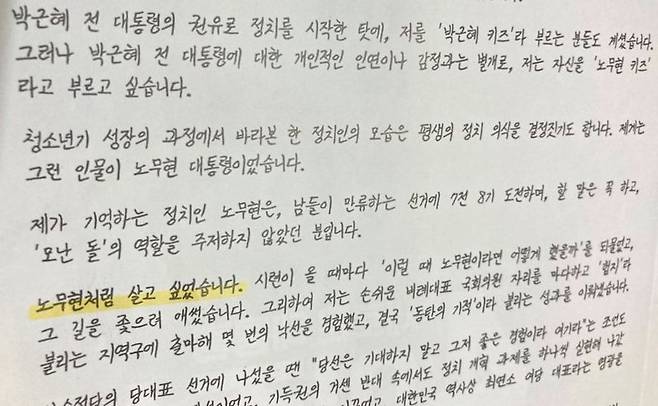 박근혜 전 대통령의 권유로 정치를 시작한 탓에, 저를 '박근혜 키즈'라 부르는 분들도 계셨습니다.
그러나 박근혜 전 대통령에 대한 개인적인 인연이나 감정과는 별개로, 저는 자신을 '노무현 키즈'
라고 부르고 싶습니다.
청소년기 성장의 과정에서 바라본 한 정치인의 모습은 평생의 정치 의식을 결정짓기도 합니다. 제게는
그런 인물이 노무현 대통령이었습니다.
제가 기억하는 정치인 노무현은, 남들이 만류하는 선거에 7전 8기 도전하며, 할 말은 꼭 하고,
'모난 돌'의 역할을 주저하지 않았던 분입니다.
노무현처럼 살고 싶었습니다. 시련이 올 때마다 '이럴 때 노무현이라면 어떻게 했을까'를 되물었고,
그 길을 좇으려 애썼습니다. 그리하여 저는 손쉬운 비례대표 국회의원 자리를 마다하고 '험지'라
불리는 지역구에 출마해 몇 번의 낙선을 경험했고, 결국 '동탄의 기적'이라 불리는 성과를 이뤄냈습니다.
당의 당대표 선거에 나섰을 땐 "당선은 기대하지 말고 그저 좋은 경험이라 여기라"는 조언도
기득권의 거센 반대 속에서도 정치 개혁 과제를 하나씩 실현해 나갔
대한민국 역사상 최연소 여당 대표라는 영광을